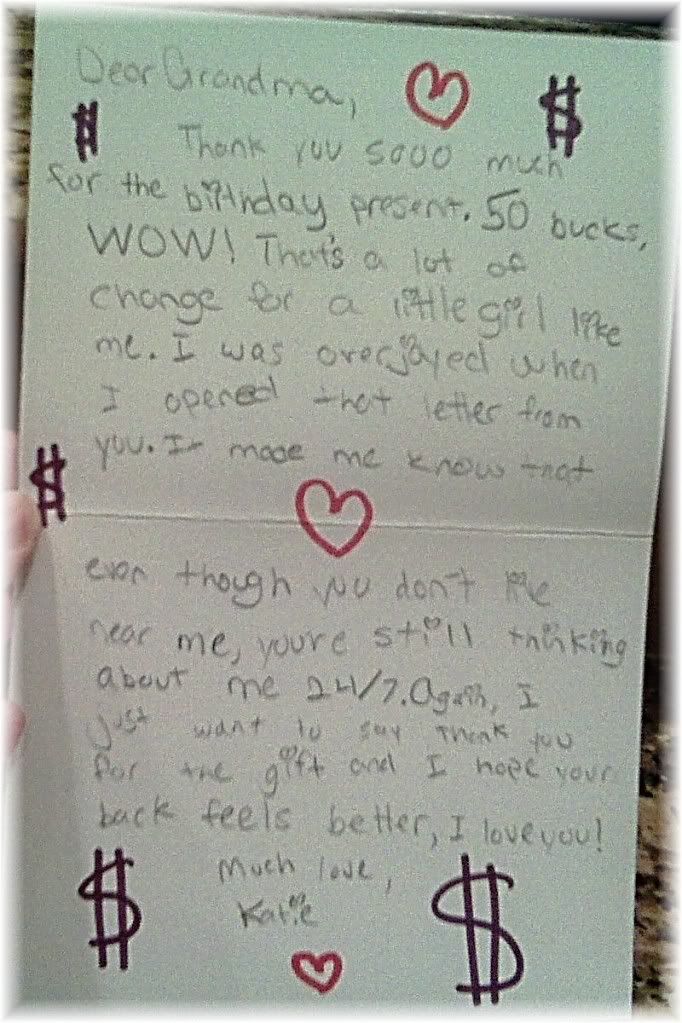 Dear Grandma,
Thank you sooo much
for the birthday present. 50 bucks,
WOW! That's a lot of
change for a little girl like
me. I was overjoyed when
I opened that letter from
you. It made me know that
even though you don't live
near me, you're still thinking
about me 24/7. Again, I
just want to say thank you
for the gift and I hope your
back feels better, I love you!
Much love,
Katie